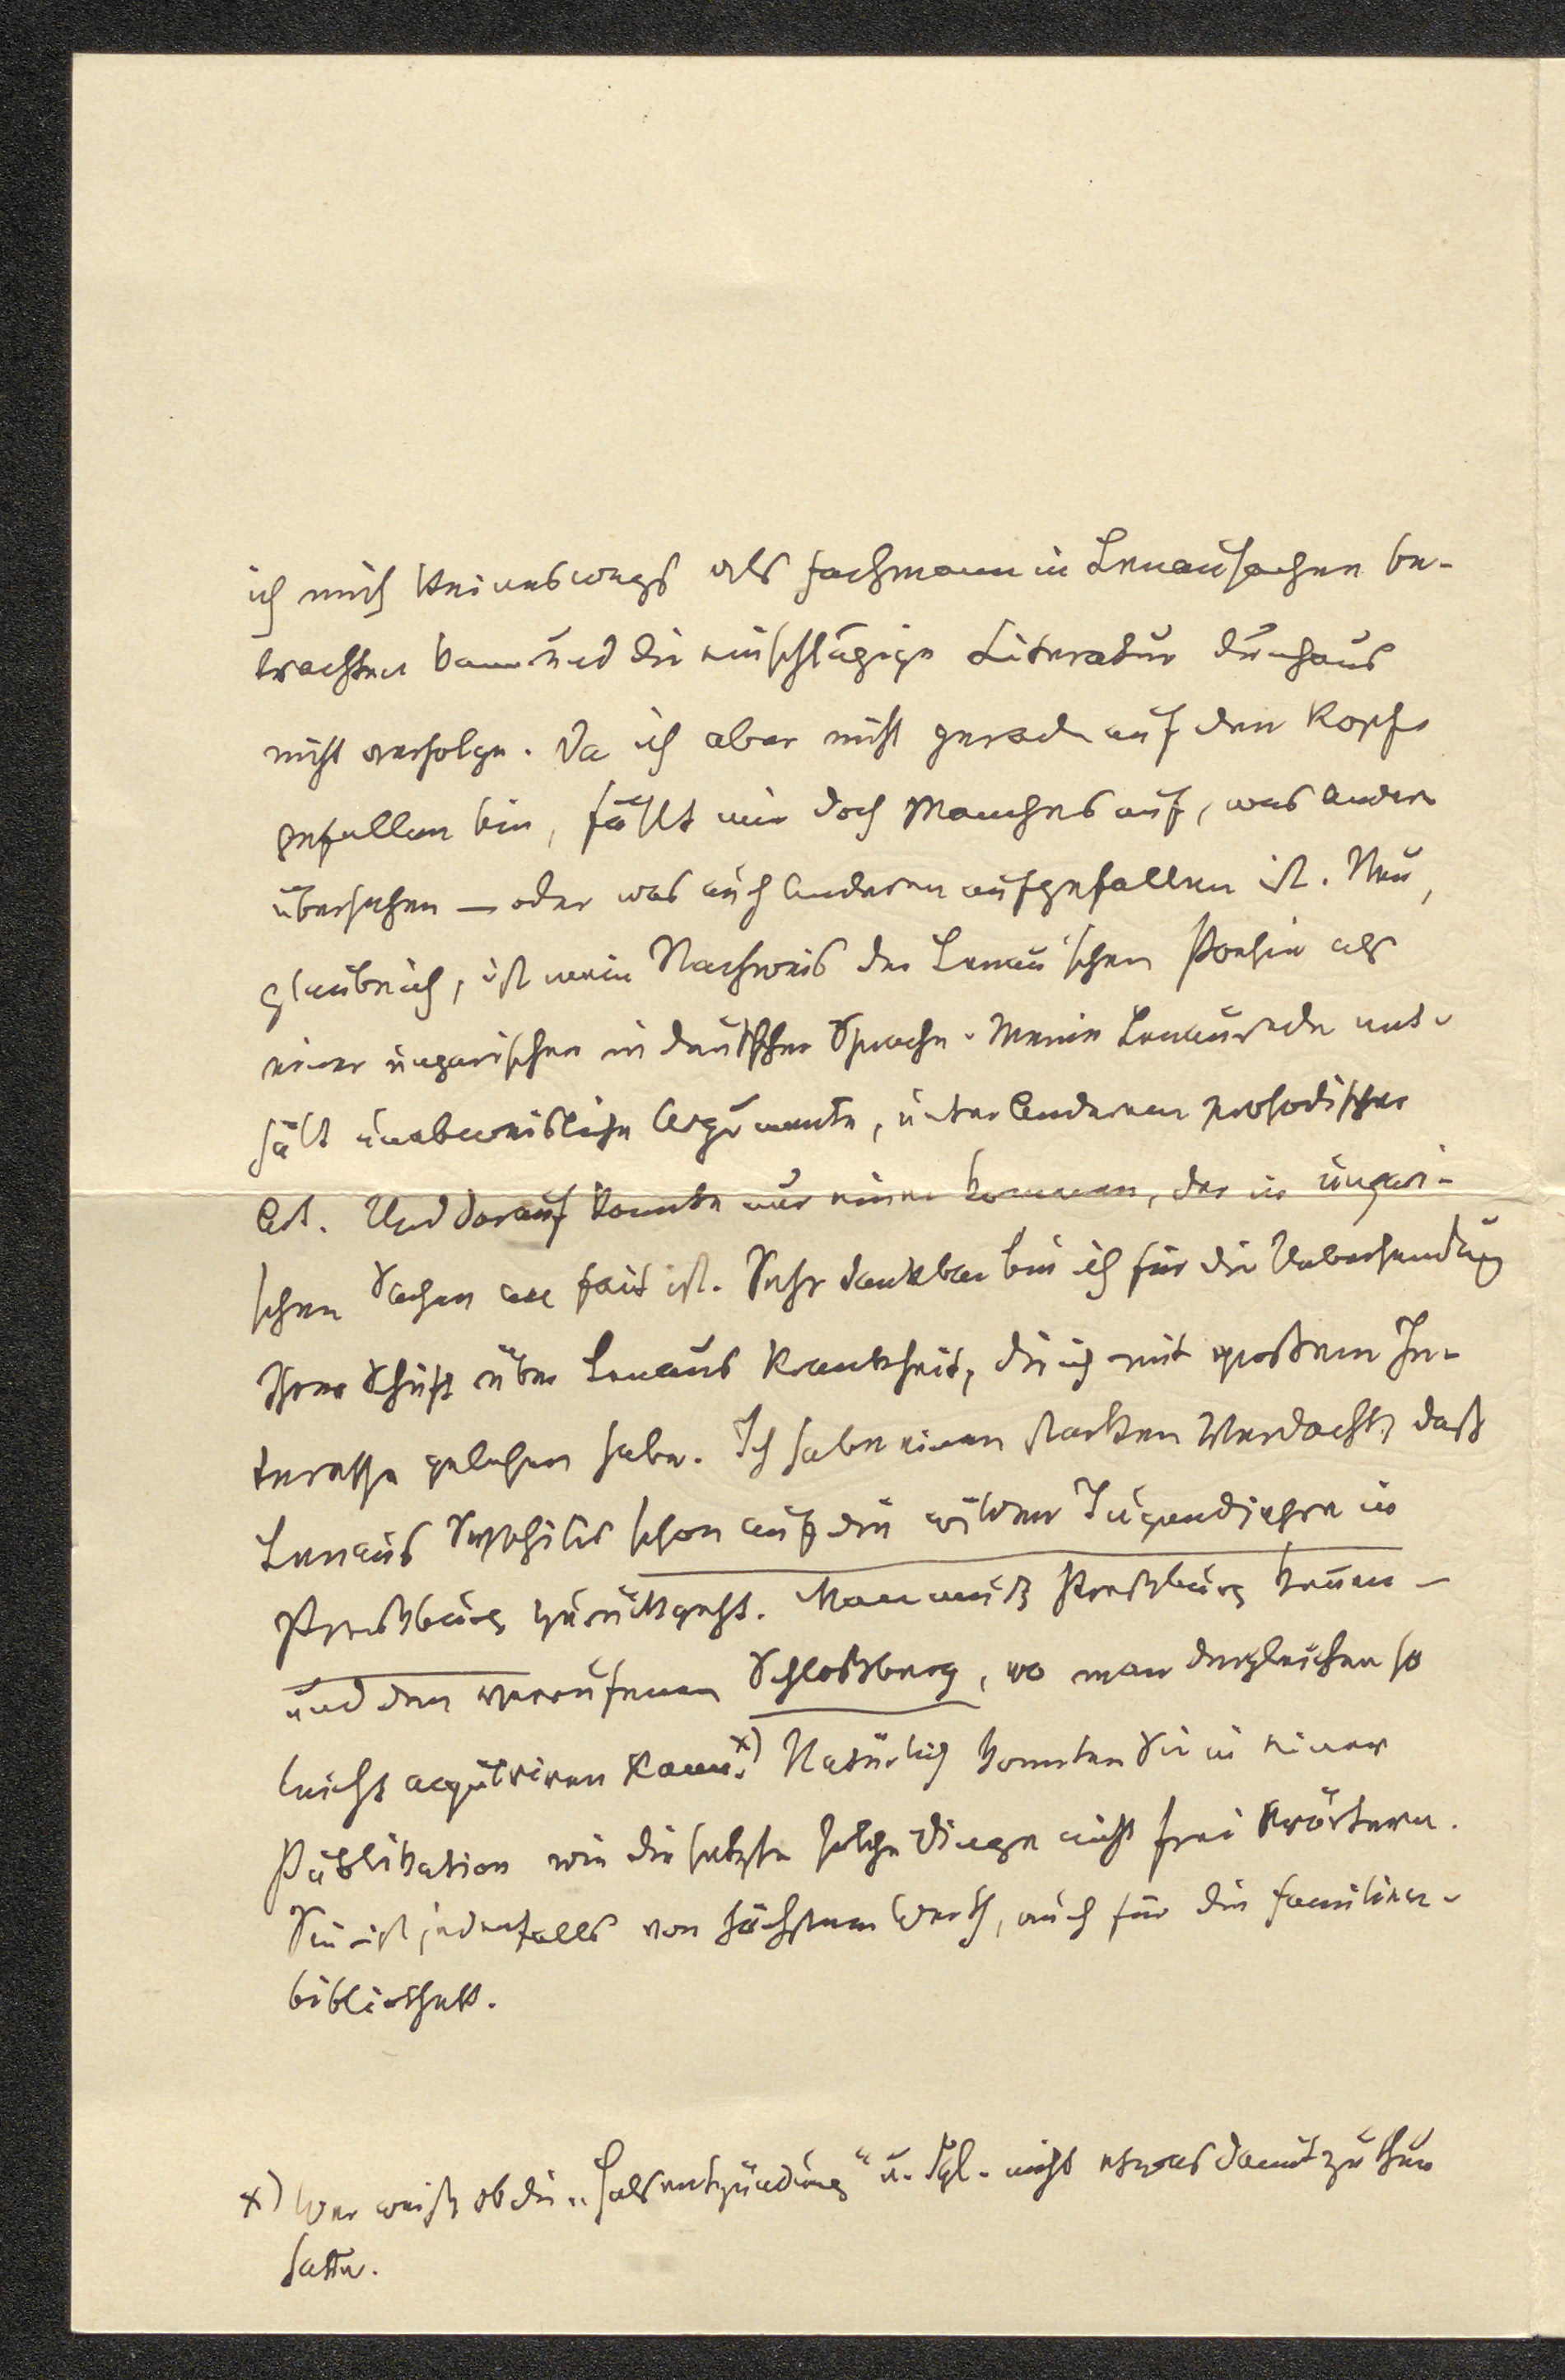 ich mich keineswegs als Fachmann in Lenausachen be-
trachten kann und die einschlägige Literatur durchaus
nicht verfolge. Da ich aber nicht gerade auf den Kopf
gefallen bin, fällt mir doch Manches auf, was Andere
übersehen — oder was auch Anderen aufgefallen ist. Neu,
glaube ich, ist mein Nachweis der Lenau'schen Poesie als
einer ungarischen in deutscher Sprache. Meine Lenaurede ent-
hält unabweisliche Argumente, unter Anderem prosodischer
Art. Und darauf konnte nur einer kommen, der in ungari-
schen Sachen au fait ist. Sehr dankbar bin ich für die Uebersendung
Ihrer Schrift über Lenaus Krankheit, die ich mit großem In-
teresse gelesen habe. Ich habe einen starken Verdacht, daß
Lenaus Syphilis schon auf die wilden Jugendjahre in
Preßburg zurückgeht. Man muß Preßburg kennen —
und den verrufenen Schloßberg, wo man dergleichen so
leicht acquiriren kann.x) Natürlich konnten Sie in einer
Publikation wie die letzte solche Dinge nicht frei erörtern.
Sie ist jedenfalls von höchstem Werth, auch für die Familien-
bibliothek.
x) Wer weiß ob die „Halsentzündung“ u. dgl. nicht etwas damit zu thun
hatte.